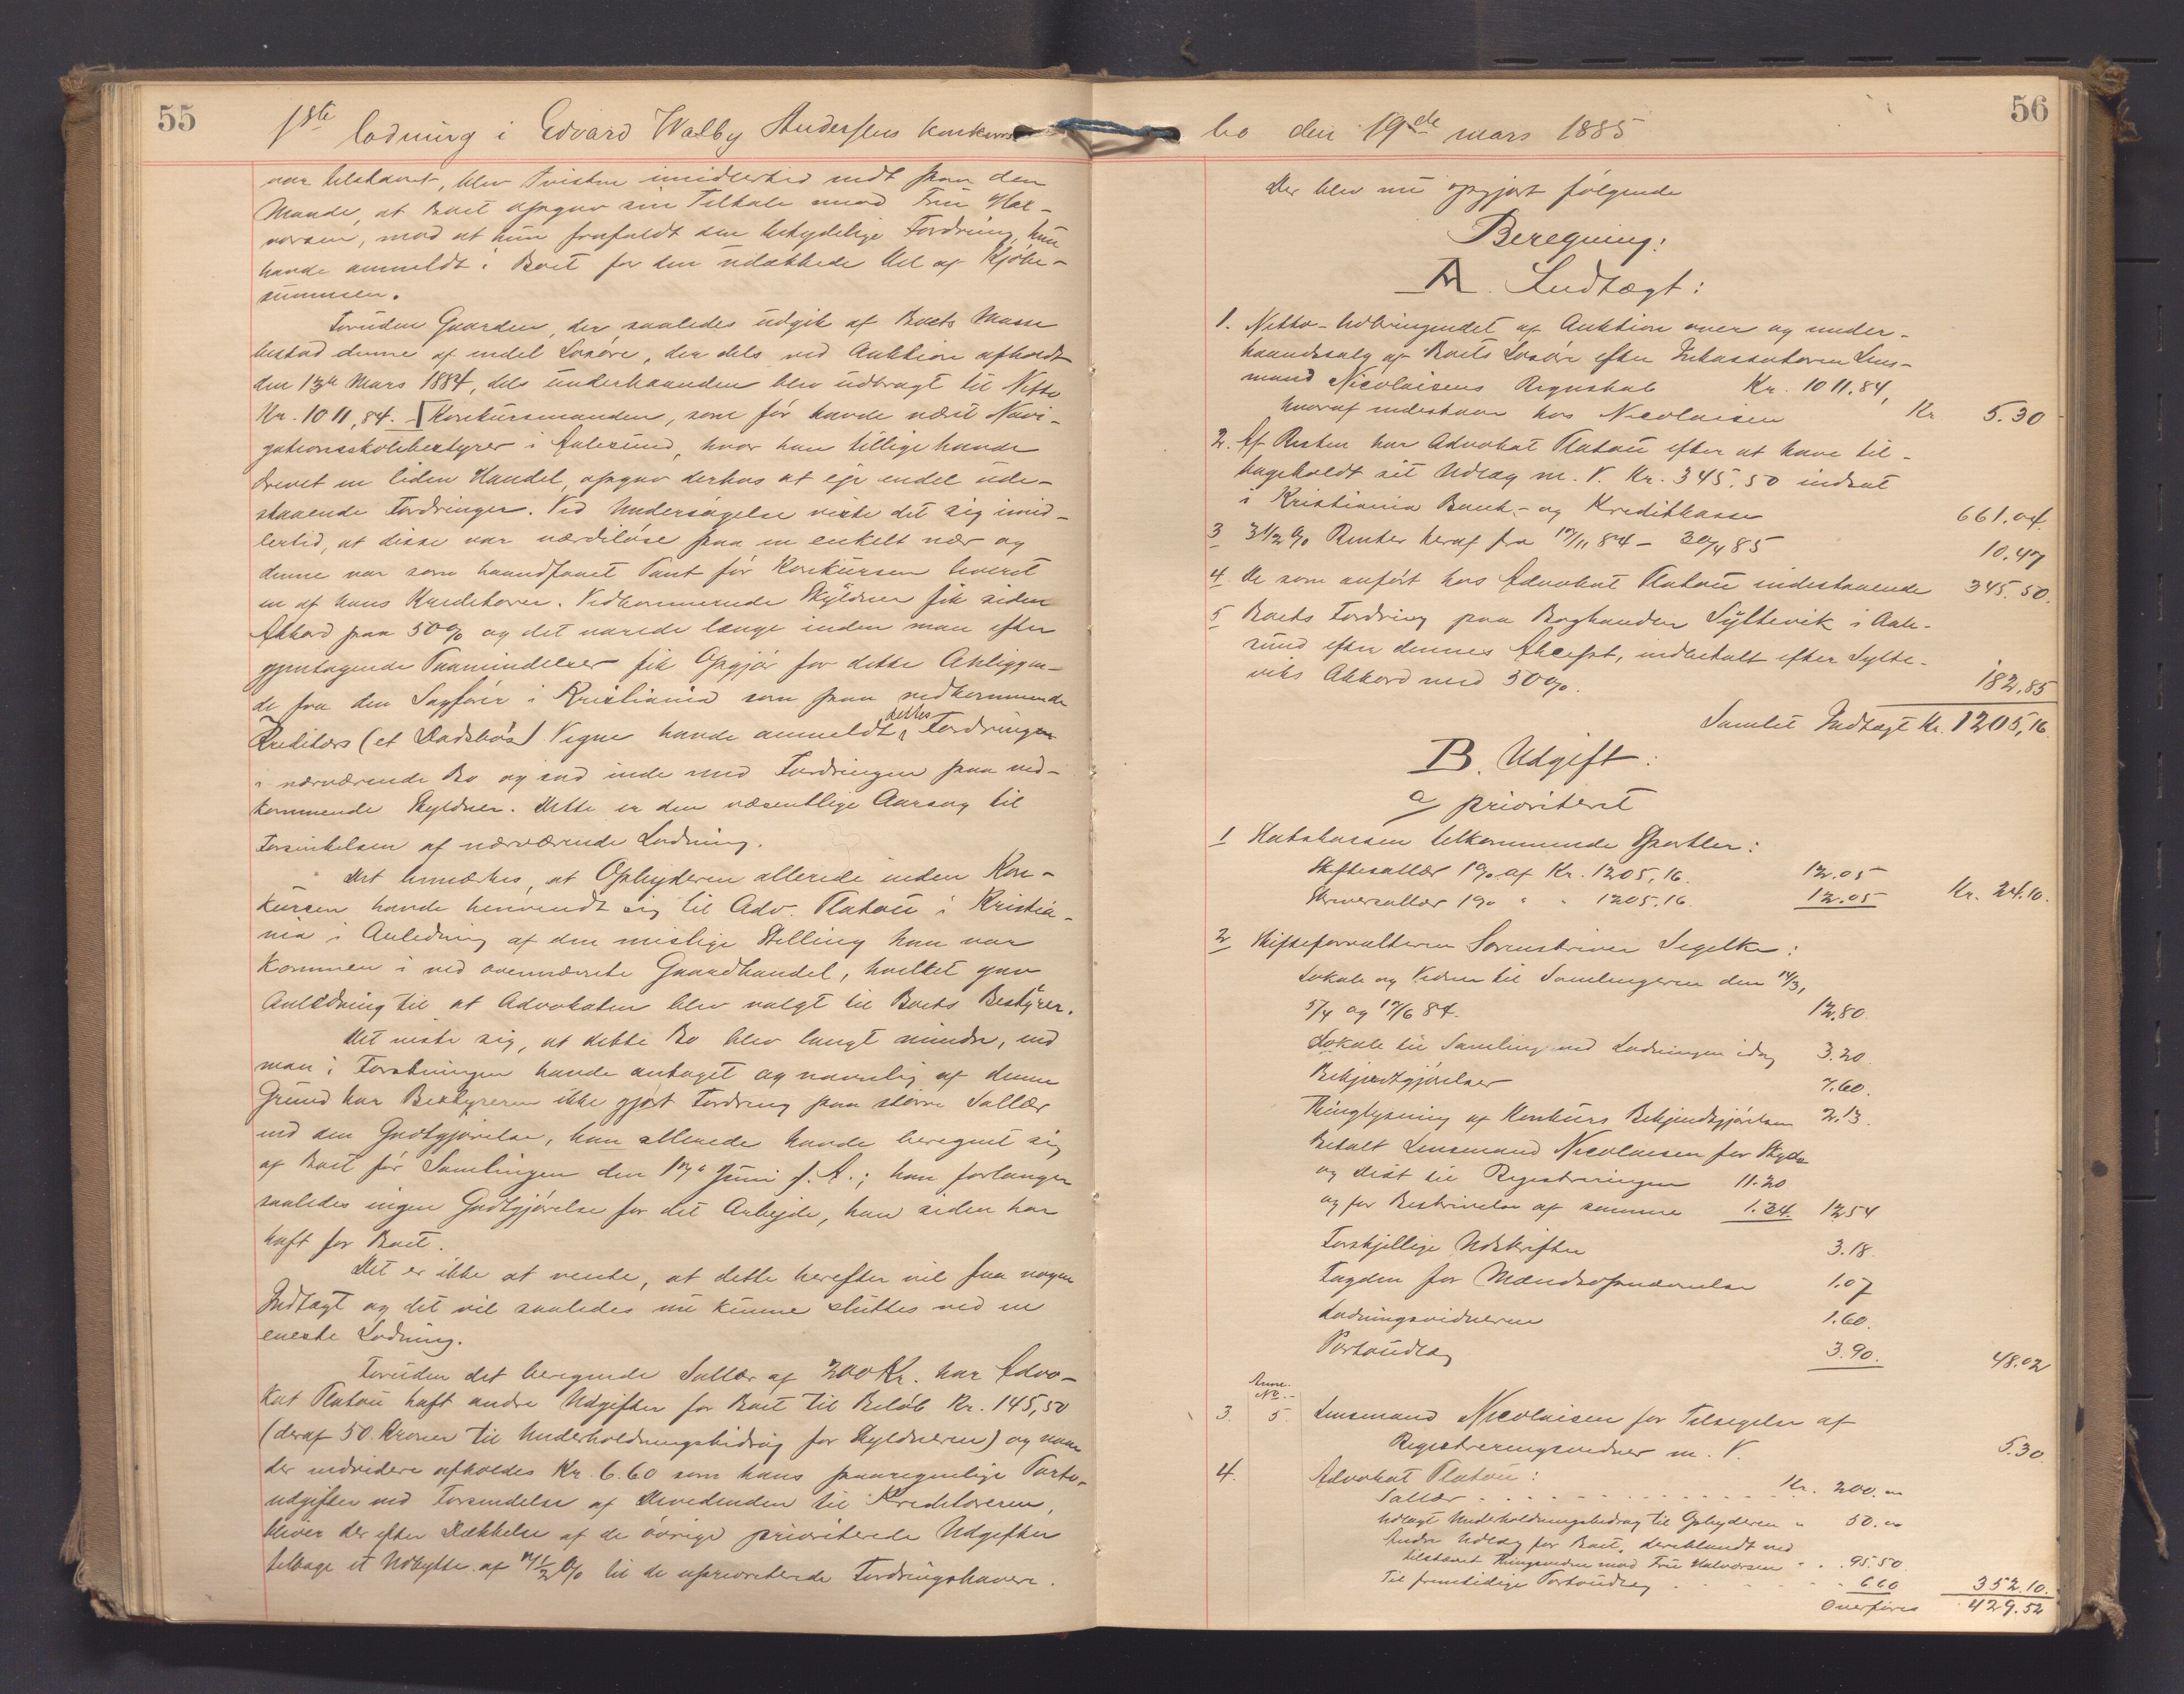 55
1ste lodning i Edvard Walby Andersens konkurs
var tilstævnt, blev Tvisten imidlertid endt paa den
Maade, at Boet opgav sin Tiltale mod Fru Hal-
vorsen, mod at hun frafaldt den betydelige Fordring, hun
havde anmeldt i Boet for den udækkede Del af Kjøbe-
summen.
Foruden Gaarden, der saaledes udgik af Boets Masse
bestod denne af endel Løsøre, der dels ved Auktion afholdt
den 13de Mars 1884, dels underhaanden blev udbragt til Netto
Kr. 1011,84. Konkursmanden, som før havde været Navi-
gationsskolebestyrer i Aalesund, hvor han tillige havde
drevet en liden Handel, opgav derhos at eje endel ude-
staaende Fordringer. Ved Undersøgelse viste det sig imid-
lertid, at disse var værdiløse paa en enkelt nær og
denne var som haandfaaet Pant før Konkursen leveret
en af hans Kreditorer. Vedkommende Skyldner fik siden
Akkord paa 50% og det varede længe inden man efter
gjentagende Paamindelser fik Opgjør for dette Anliggen-
de fra den Sagfører i Kristiania som paa vedkommende
Kreditors (et Dødsbos) Vegne havde anmeldt dettes Fordringer
i nærværende Bo og sad inde med Fordringen paa ved-
kommende Skyldner. Dette er den væsentlige Aarsag til
Forsinkelsen af nærværende Lodning.
Det bemærkes, at Opbyderen allerede inden Kon-
kursen havde henvendt sig til Adv. Platou i Kristia-
nia i Anledning af den mislige Stilling han var
kommen i ved ovennævnte Gaardhandel, hvilket gav
Anledning til at Advokaten blev valgt til Boets Bestyrer.
Det viste sig, at dette Bo blev langt mindre, end
man i Forstningen havde antaget og navnlig af denne
Grund har Bestyreren ikke gjort Fordring paa større Sallær
end den Godtgjørelse, han allerede havde beregnet sig
af Boet før Samlingen den 17de Juni f. A.; han forlanger
saaledes ingen Godtgjørelse for det Arbejde, han siden har
haft for Boet.
Det er ikke at vente, at dette herefter vil faa nogen
Indtægt og det vil saaledes nu kunne sluttes ved en
eneste Lodning.
Foruden det beregnede Sallær af 200 Kr. har Advo-
kat Platou haft andre Udgifter for Boet til Beløb Kr. 145,50
(deraf 50 Kroner til Underholdningsbidrag for Skyldneren) og naar
der endvidere afholdes Kr. 6.60 som hans paaregnelige Porto-
udgifter ved Forsendelse af Dividenden til Kreditorerne,
bliver der efter Dækkelse af de øvrige prioriterede Udgifter
tilbage et Udbytte af 7 1/2 % til de uprioriterede Fordringshavere.
56
bo den 19de mars 1885
Der blev nu opgjort følgende
Beregning:
A. Indtægt:
1. Netto-Udbringendet af Auktion over og under-
haandssalg af Boets Løsøre efter Inkassatoren Lens-
mand Nicolaisens Regnskab Kr. 1011.84,
hvoraf indestaar hos Nicolaisen Kr. 5.30
2. Af Resten har Advokat Platou efter at have til-
bageholdt sit Udlæg m. V. Kr. 345.50 indsat
i Kristiania Bank- og Kreditkasse 661.04.
3 3 1/2 % Renter heraf fra 17/11 84 - 30/4 85 10.47
4. De som anført hos Advokat Platou indestaaende 345.50.
5 Boets Fordring paa Boghandler Syltevik i Aale-
sund efter dennes Akcept, indbetalt efter Sylte-
viks Akkord med 50%. 182.85
Samlet Indtægt Kr. 1205,16.
B. Udgift:
a/ prioriteret
1 Statskassen tilkommende Sportler:
Skiftesallær 1% af Kr. 1205,16. 12.05
Skriversallær 1% " " 1205.16. 12.05 Kr. 24.10.
2 Skifteforvalteren Sorenskriver Segelke:
Lokale og Vidner til Samlingerne den 14/3,
5/4 og 17/6 84. 12.80.
Lokale til Samling ved Lodningen idag 3.20.
Bekjendtgjørelser 7.60.
Thinglysning af Konkurs Bekjendtgjørelsen 2.13.
Betalt Lensmand Nicolaisen for Skyds
og Diæt til Registreringen 11.20
og for Beskrivelse af samme 1.34. 12.54
Forskjellige Udskrifter 3.18.
Tagden for Mændsopnævnelse 1.07
Lodningsvidnerne 1.60.
Portoudlæg 3.90. 48.02
Anm.
No.
3. 5. Lensmand Nicolaisen for Tilsigelse af
Registreringsvidner m. V. 5.30.
4. Advokat Platou:
Sallær Kr. 200.00
Udlagt Underholdningsbidrag til Opbyderen " 50.00
Andre Udlæg for Boet, deriblandt ved
tilstævnt Thingsvidne mod Fru Halvorsen " 95.50
Til fremtidige Portoudlæg 6.60 352.10.
Overføres 429.52